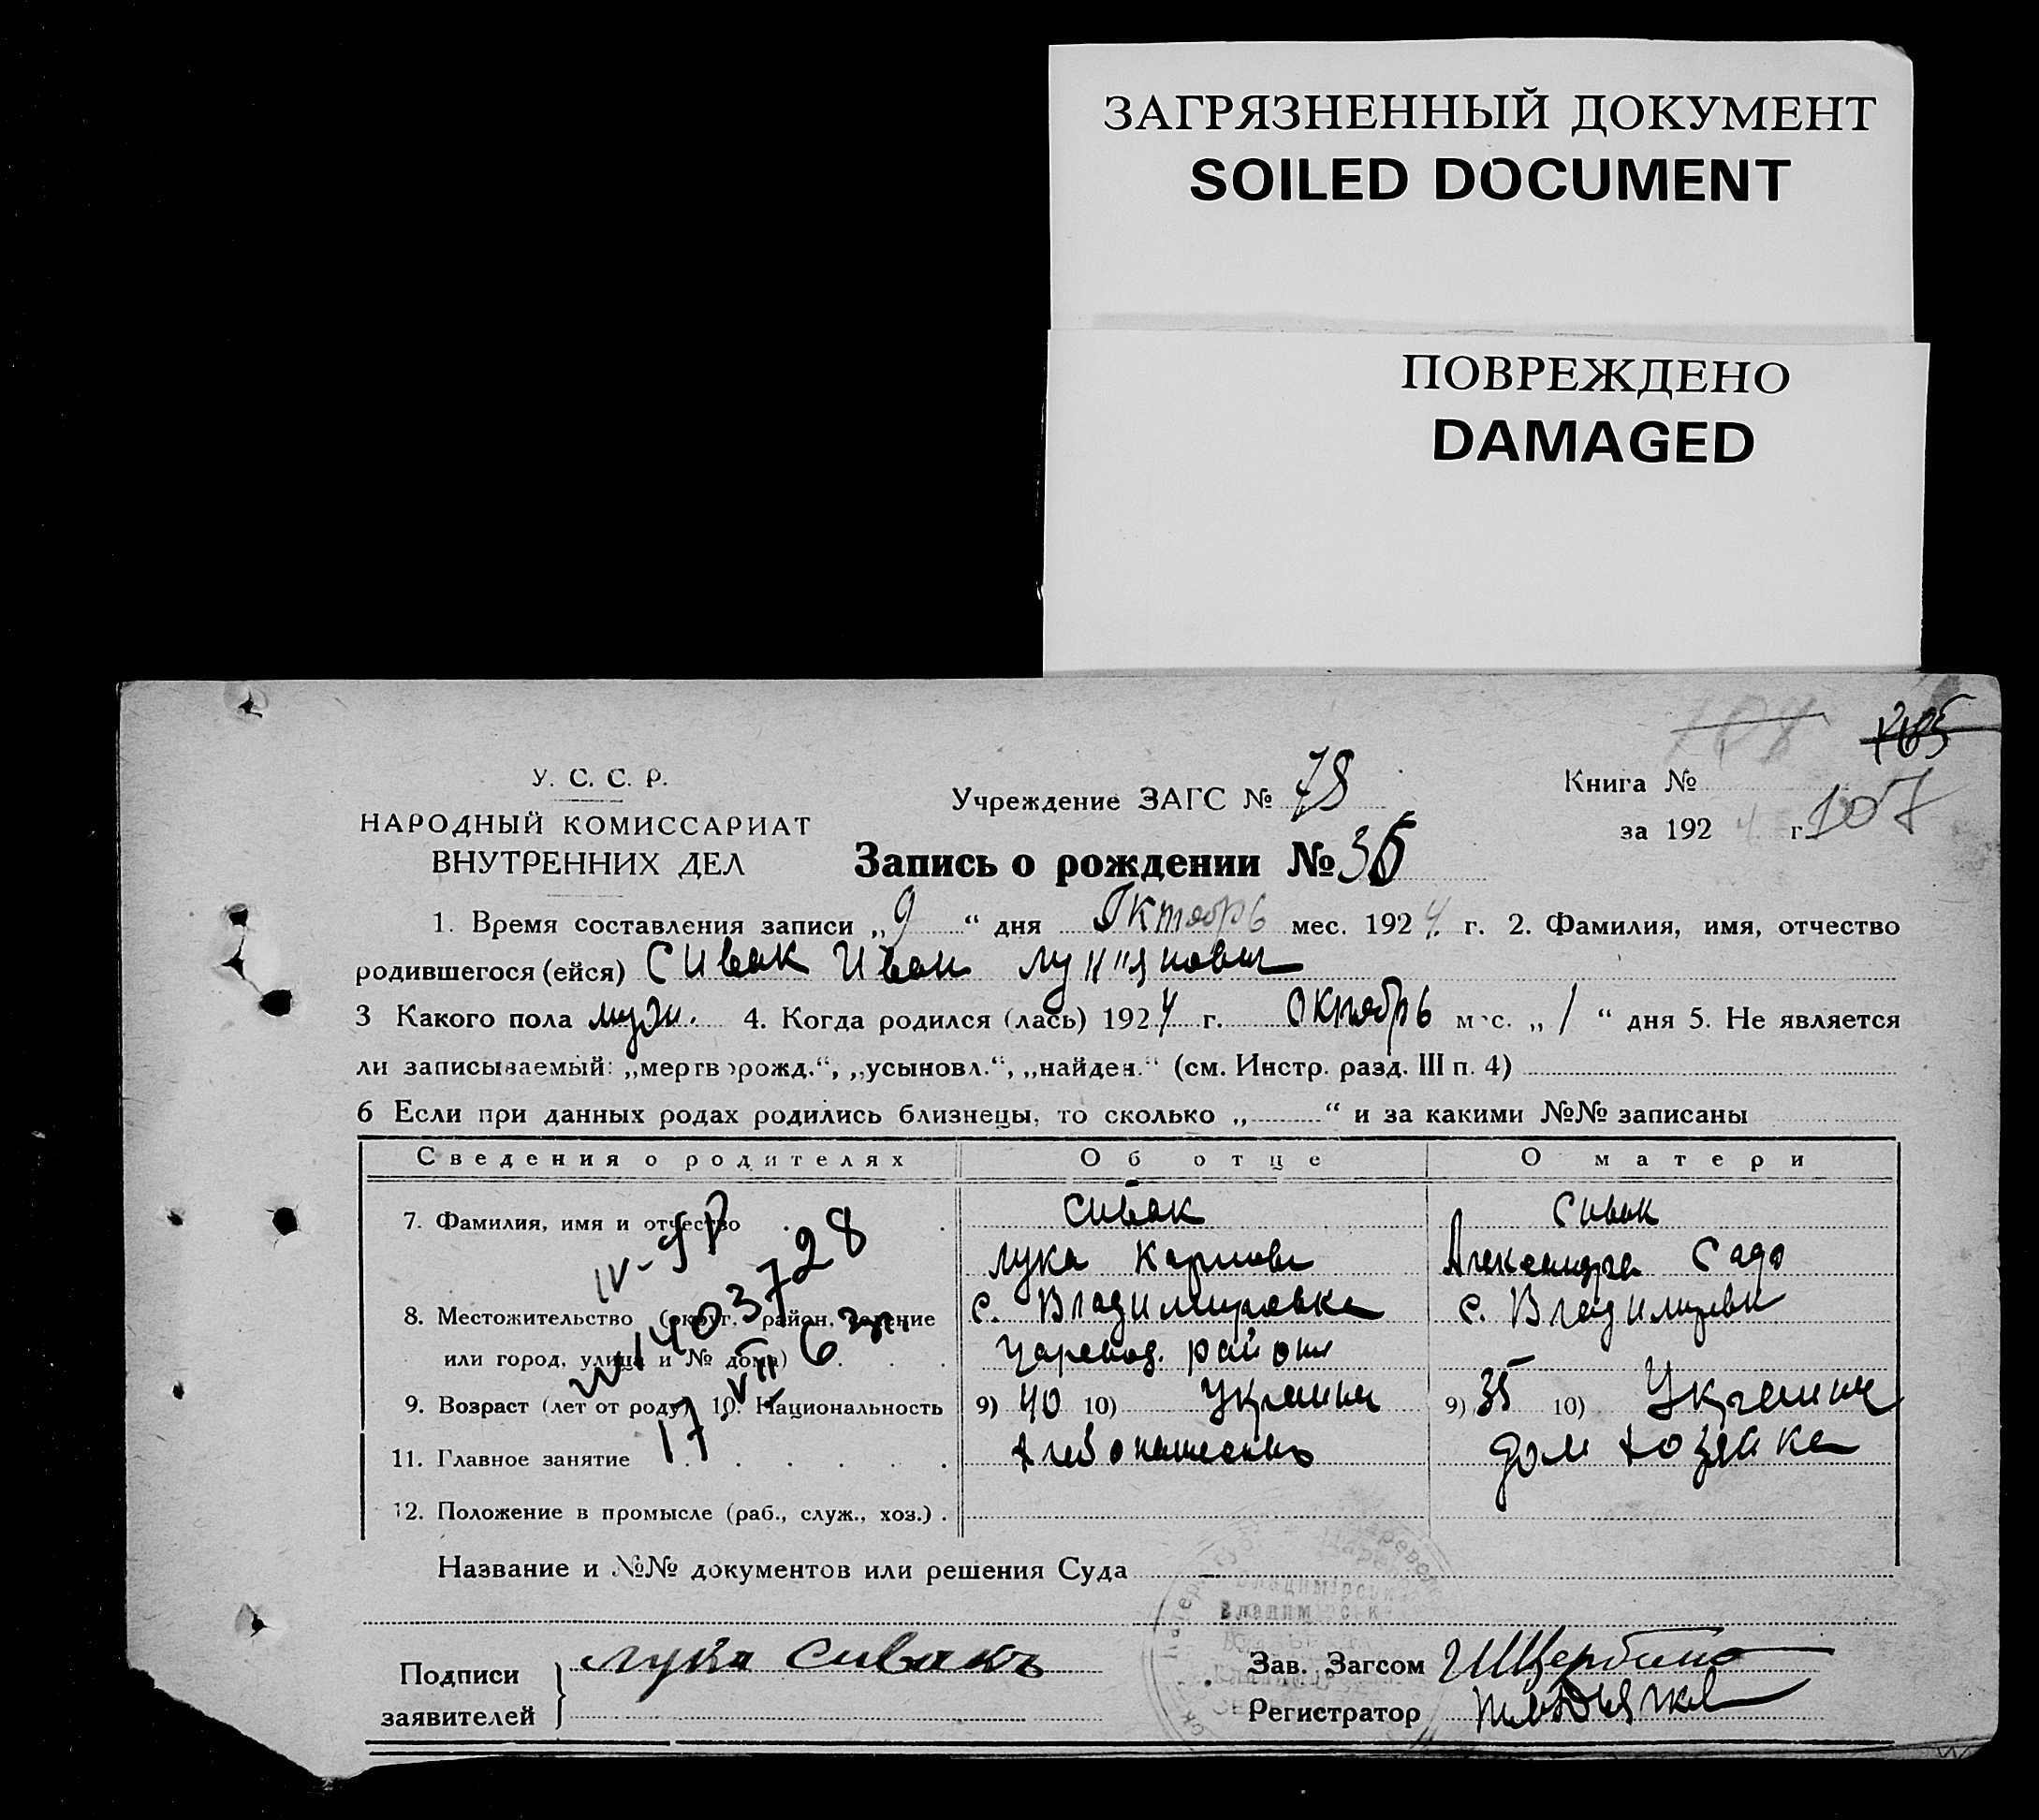 ЗАГРЯЗНЕННЫЙ ДОКУМЕНТ
SOILED DOCUMENT
ПОВРЕЖДЕНО
DAMAGED
108 105
У. С. С. Р.
НАРОДНЫЙ КОМИССАРИАТ
ВНУТРЕННИХ ДЕЛ
Учреждение ЗАГС № 78
Книга №
за 192 4 г. 107
Запись о рождении № 35
1. Время составления записи „ 9 “ дня Октябрь мес. 192 4 г. 2. Фамилия, имя, отчество
родившегося (ейся) Сивак Иван Лук"янович
3 Какого пола муж. 4. Когда родился (лась) 192 4 г. Октябрь мес. „ 1 “ дня 5. Не является
ли записываемый: „мертворожд.“, „усыновл.“, „найден.“ (см. Инстр. разд. III п. 4)
6 Если при данных родах родились близнецы, то сколько „ “ и за какими №№ записаны
Сведения о родителях Об отце О матери
7. Фамилия, имя и отчество Сивак Сивак
Лука Карпови Александра
8. Местожительство (округ, район, селение с. Владимировка с. Владимровки
или город, улица и № дома) района
9. Возраст (лет от роду) 10. Национальность 9) 40 10) Украинц 9) 35 10) Украинц
11. Главное занятие дом хозяйка
12. Положение в промысле (раб., служ., хоз.)
IV-
1403728
17 VII 63
Название и №№ документов или решения Суда
Подписи
заявителей
Лука Сивакъ
Зав. Загсом Щербина
Регистратор